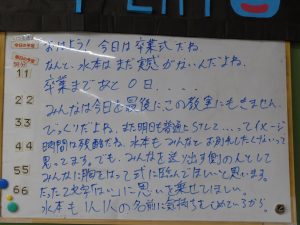 おはよう！今日は卒業式だね。
なんと、水本はまだ実感がないんだよね。
卒業まであと0日．．．．
みんなは今日を最後にこの教室にもきません。
びっくりだよね。また明日も普通にSTして．．．ってイメージ
時間は残酷だね。水本もみんなとお別れしたくないって
思ってます。でも、みんなを送り出す側の人として
みんなに胸をはって式に臨んでほしいと思います。
たった2文字「はい」に思いを乗せてほしい。
水本も1人1人の名前に気持ちをこめているから。
11
22
33
44
55
66